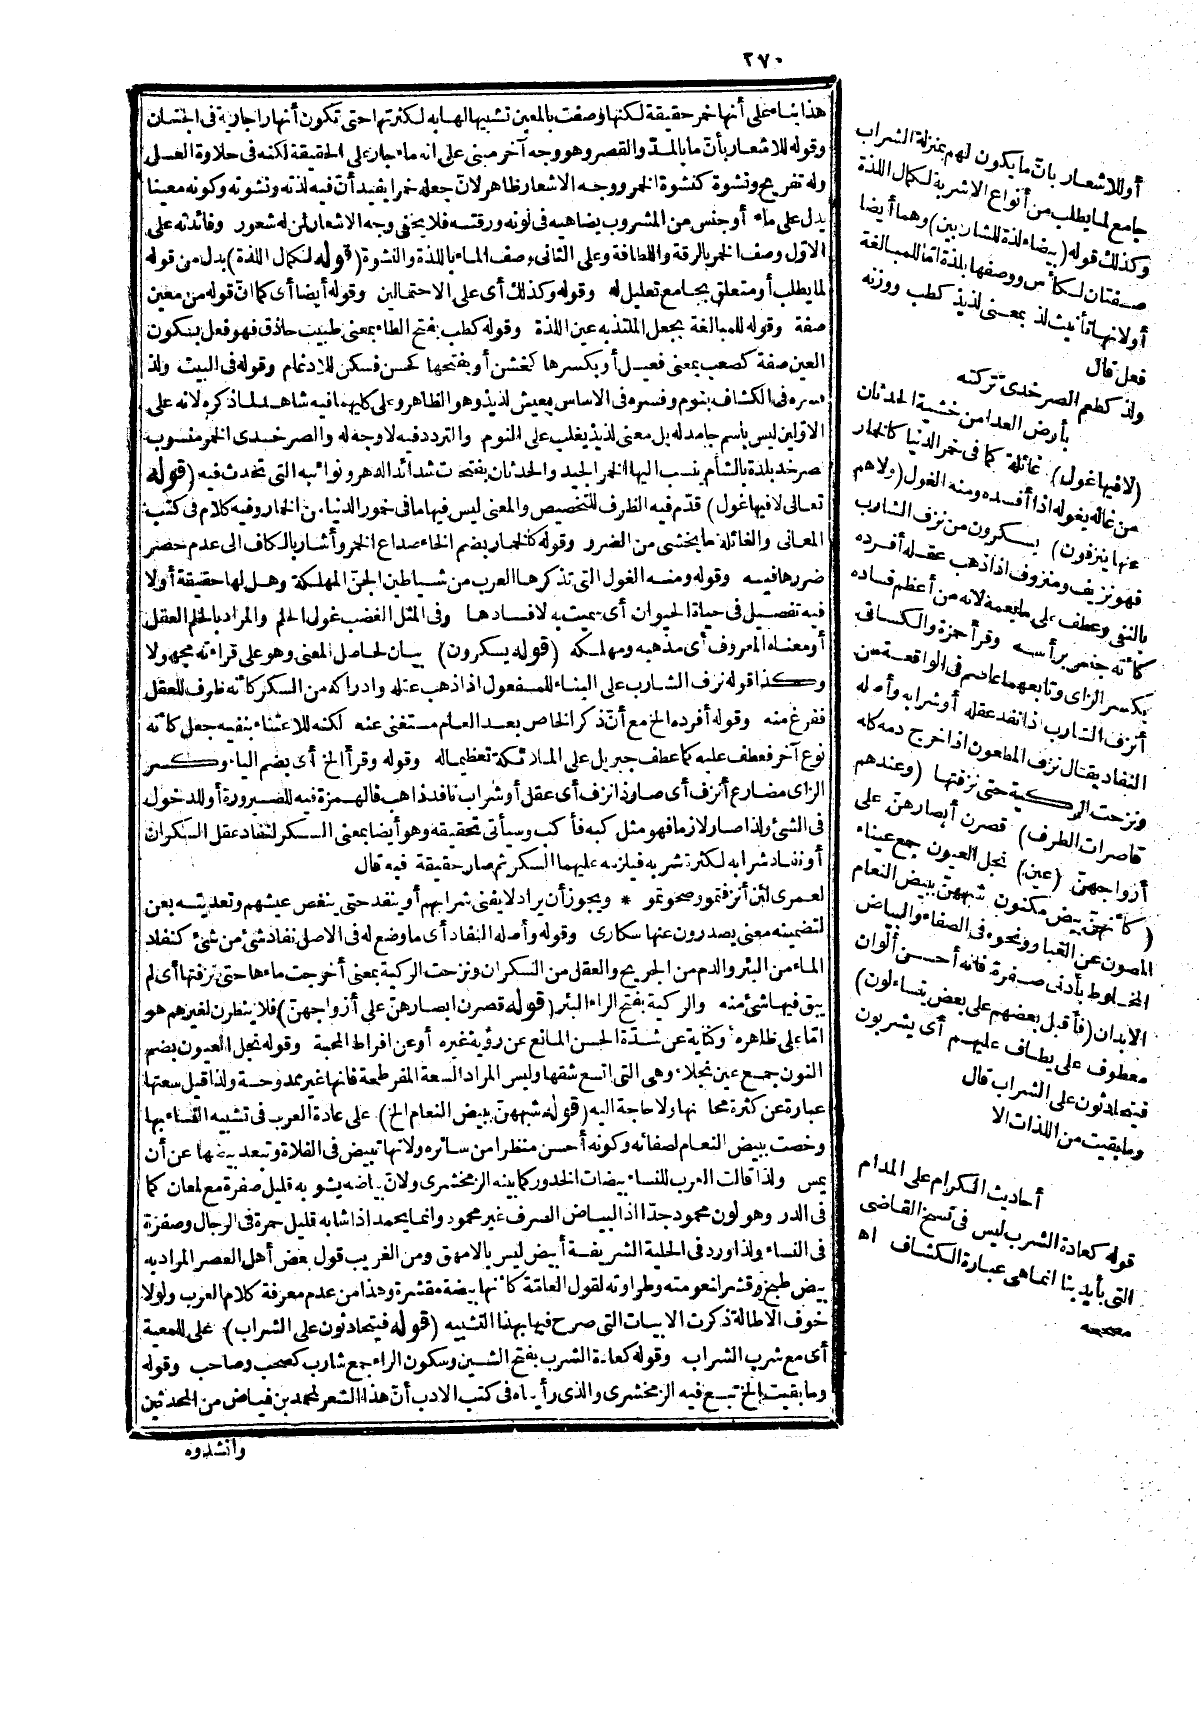 ٢٧٠
هذا بناء على أنها خمر حقيقة لكنها وصفت بالمعين تشبيها لها به لكثرتها حتى تكون أنهارا جارية فى الجنان
وقوله للاشعار بأنّ ما بالمدّ والقصر وهو وجه آخر مبنى على انه ماء جار على الحقيقة لكنه فى حلاوة العسل
وله تفريح ونشوة كنشوة الخمر ووجه الاشعار ظاهر لانّ جعله خمرا يفيد أنّ فيه لذته ونشوته وكونه معينا
يدل على ماء أو جنس من المشروب يضاهيه فى لونه ورقته فلا يخفى وجه الاشعار لمن له شعور وفائدته على
الاوّل وصف الخمر بالرقة واللطافة وعلى الثانى وصف الماء باللذة والنشوة (قوله لكمال اللذة) بدل من قوله
لما يطلب أو متعلق بجامع تعليل له وقوله وكذلك أى على الاحتمالين وقوله أيضا أى كما انّ قوله من معين
صفة وقوله للمبالغة بجعل الملتذ به عين اللذة وقوله كطب بفتح الطاء بمعنى طبيب حاذق فهو فعل بسكون
العين صفة كصعب بمعنى فعيل أو بكسرها كخشن أو بفتحها كحسن فسكن للادغام وقوله فى البيت ولذ
فسره فى الكشاف بنوم وفسره فى الاساس بعيش لذيذ وهو الظاهر وعلى كليهما فيه شاهد لما ذكره لانه على
الاوّلين ليس باسم جامد له بل معنى لذيذ يغلب على النوم والتردد فيه لا وجه له والصرخدى الخمر منسوب
صرخد بلدة بالشأم ينسب اليها الخمر الجيد والحدثان بفتحات شدائد الدهر ونوائبه التى تحدث فيه (قوله
تعالى لا فيها غول) قدّم فيه الظرف للتخصيص والمعنى ليس فيها ما فى خمور الدنيا من الخمار وفيه كلام فى كتب
المعانى والغائلة ما يخشى من الضرر وقوله كالخمار بضم الخاء صداع الخمر وأشار بالكاف الى عدم حصر
ضررها فيه وقوله ومنه الغول التى تذكرها العرب من شياطين الجنّ المهلكة وهل لها حقيقة أولا
فيه تفصيل فى حياة الحيوان أى سميت به لافسادها وفى المثل الغضب غول الحلم والمراد بالحلم العقل
أو معناه المعروف أى مذهبه ومهلكه (قوله يسكرون) بيان لحاصل المعنى وهو على قراءته مجهولا
وكذا قوله نزف الشارب على البناء للمفعول اذا ذهب عقله وادراكه من السكر كأنه ظرف للعقل
ففرغ منه وقوله أفرده الخ مع أنّ ذكر الخاص بعد العام مستغنى عنه لكنه للاعتناء بنفيه جعل كأنه
نوع آخر فعطف عليه كما عطف جبريل على الملائكة تعظيما له وقوله وقرأ الخ أى بضم الياء وكسر
الزاى مضارع أنزف أى صار ذا نزف أى عقل أو شراب نافد ذاهب فالهمزة فيه للصيرورة أو للدخول
فى الشئ ولذا صار لازما فهو مثل كبه فأكب وسيأتى تحقيقه وهو أيضا بمعنى السكر لنفاد عقل السكران
أو نفاد شرابه لكثرة شربه فيلزمه عليهما السكر ثم صار حقيقة فيه قال
لعمرى لئن أنزفتمو أو صحوتمو * ويجوز أن يراد لا يفنى شرابهم أو ينفد حتى ينغص عيشهم وتعديته بعن
لتضمينه معنى يصدرون عنها سكارى وقوله وأصله النفاد أى ما وضع له فى الاصل نفاد شئ من شئ كنفاد
الماء من البئر والدم من الجريح والعقل من السكران ونزحت الركية بمعنى أخرجت ماءها حتى نزفتها أى لم
يبق فيها شئ منه والركية بفتح الراء البئر (قوله قصرن ابصارهنّ على أزواجهنّ) فلا ينظرن لغيرهم هو
امّا على ظاهره أو كناية عن شدّة الحسن المانع عن رؤية غيره أو عن افراط المحبة وقوله نجل العيون بضم
النون جمع عين نجلاء وهى التى اتسع شقها وليس المراد السعة المفرطة فانها غير ممدوحة ولذا قيل سعتها
عبارة عن كثرة محاسنها ولا حاجة اليه (قوله شبههنّ ببيض النعام الخ) على عادة العرب فى تشبيه النساء بها
وخصت ببيض النعام لصفائه وكونه أحسن منظرا من سائره ولانها تبيض فى الفلاة وتبعد ببيضها عن أن
يمس ولذا قالت العرب للنساء بيضات الخدور كما بينه الزمخشرى ولانّ بياضه يشوبه قليل صفرة مع لمعان كما
فى الدر وهو لون محمود جدّا اذ البياض الصرف غير محمود وانما يحمد اذا شابه قليل حمرة فى الرجال وصفرة
فى النساء ولذا ورد فى الحلية الشريفة أبيض ليس بالامهق ومن الغريب قول بعض أهل العصر المراد به
بيض طبخ وقشر لنعومته وطراوته لقول العامّة كأنها بيضة مقشرة وهذا من عدم معرفة كلام العرب ولولا
خوف الاطالة ذكرت الابيات التى صرح فيها بهذا التشبيه (قوله فيتحادثون على الشراب) على للمعية
أى مع شرب الشراب وقوله كعادة الشرب بفتح الشين وسكون الراء جمع شارب كصحب وصاحب وقوله
وما بقيت الخ تبع فيه الزمخشرى والذى رأيناه فى كتب الادب أنّ هذا الشعر لمحمد بن فياض من المحدثين
وأنشدوه
أو للاشعار بانّ ما يكون لهم بمنزلة الشراب
جامع لما يطلب من أنواع الاشربة لكمال اللذة
وكذلك قوله (بيضاء لذة للشاربين) وهما أيضا
صفتان لكأس ووصفها بلذة امّا للمبالغة
أو لانها تأنيث لذ بمعنى لذيذ كطب ووزنه
فعل قال
ولذ كطعم الصرخدى تركته
بأرض العدا من خشية الحدثان
(لا فيها غول) غائلة كما فى خمر الدنيا كالخمار
من غاله يغوله اذا أفسده ومنه الغول (ولا هم
عنها ينزفون) يسكرون من نزف الشارب
فهو نزيف ومنزوف اذا ذهب عقله أفرده
بالنفى وعطف على ما يعمه لانه من أعظم فساده
كأنه جنس برأسه وقرأ حمزة والكسائى
بكسر الزاى وتابعهما عاصم فى الواقعة من
أنزف الشارب اذا نفد عقله أو شرابه وأصله
النفاد يقال نزف المطعون اذا خرج دمه كله
ونزحت الركية حتى نزفتها (وعندهم
قاصرات الطرف) قصرن أبصارهنّ على
أزواجهنّ (عين) نجل العيون جمع عيناء
(كأنهنّ بيض مكنون) شبههنّ ببيض النعام
المصون عن الغبار ونحوه فى الصفاء والبياض
المخلوط بأدنى صفرة فانه أحسن ألوان
الابدان (فأقبل بعضهم على بعض يتساءلون)
معطوف على يطاف عليهم أى يشربون
فيتحادثون على الشراب قال
وما بقيت من اللذات الا
أحاديث الكرام على المدام
قوله كعادة الشرب ليس فى نسخ القاضى
التى بأيدينا انما هى عبارة الكشاف اه
مصححه